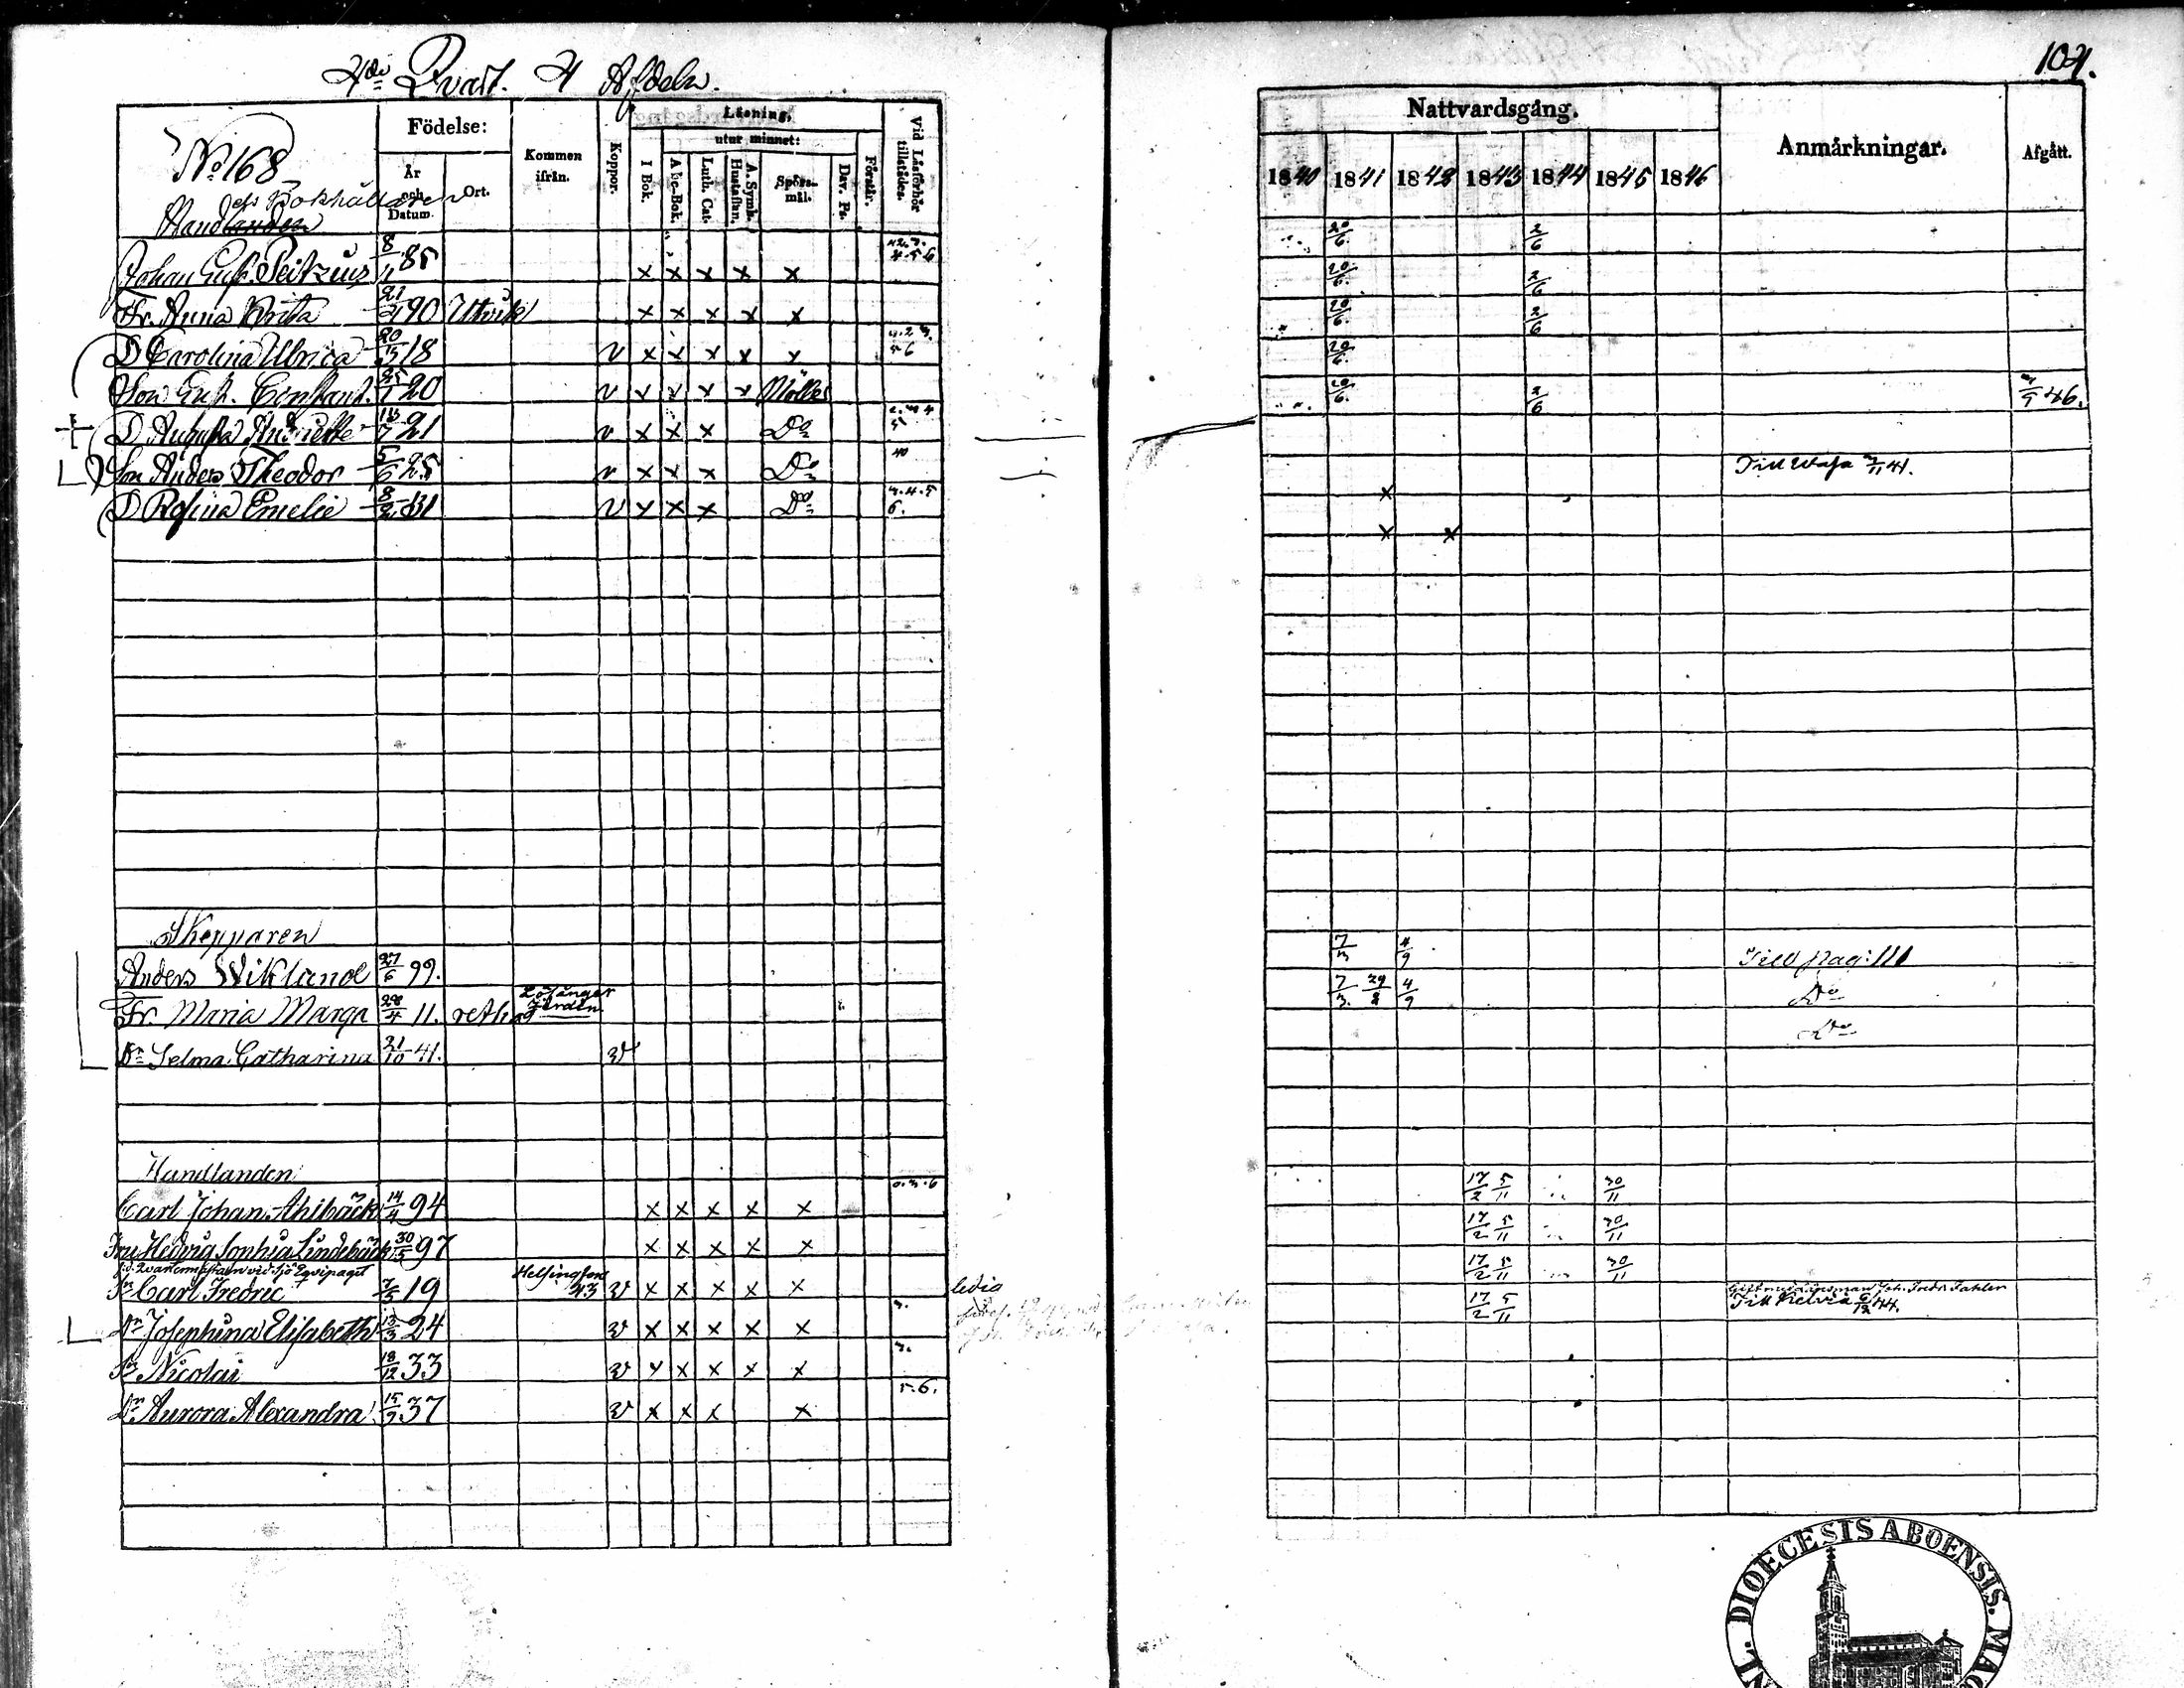 4de Qvart. 4 Afdeln.
104.
No 168
Födelse:
År och Datum.
Ort.
Kommen ifrån.
Koppor.
Läsning.
I Bok.
utur minnet:
Abc-Bok.
Luth. Cat.
A. Symb. Hustaflan.
Spörs-mål.
Dav. Ps.
Förstår.
Vid Läsförhör tillstädes.
Nattvardsgång.
1840 1841 1842 1843 1844 1845 1846
Anmärkningar.
Afgått.
Bokhållaren
Handlanden
Johan Gust. Peitzius 8/11 85 x x x x x 20/6 2/6
Fr. Anna Brita 90 Utvik x x x x x 20/6. 2/6
D Carolina Ulrica 18 v x x x x x 20/6. 2/6
Son Gust. Constant. 25/1 20 v x x x x 20/6.
D Augusta 21 v x x x Do 20/6. 2/6 46.
Son Anders Theodor 5/6 25 v x x x Do 40 Till Wasa 41.
D Rosina Emelie 8/2 31 v x x x Do 3.4.5 6. x
x x
Skepparen
Anders Wiklund 27/6 99. 7/3 4/9 Till pag: 111
Fr. Maria Marga 28/4 11. retha Lösånger Jerdin 7/3. 29/8 4/9 Do
Dr Selma Catharina 21/10 41. v Do
Handlanden
Carl Johan Ahlbäck 14/4 94 x x x x x 0.3.6 17/2 5/11 30/11
Fru Hedvig Sophia Lindebäck 30/5 97 x x x x x 17/2 5/11 30/11
Qvartermästaren vid Sjö Eqvipaget
Sn Carl Fredric 7/5 19 Helsingfors 43 v x x x x x ledig 17/2 5/11 30/11
Dr Josephina Elisabeth 13/3 24 v x x x x x 3. 17/2 5/11 Gift med Länsman Joh. Fredr. Tahlen
Till Kelviå 6/12 44.
Sn Nicolai 18/12 33 v x x x x x 3.
Dr Aurora Alexandra 15/9 37 v x x x x 5.6.
DIOECESIS ABOENSIS.